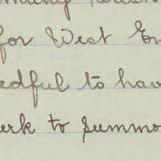 for West En
edful to hav
erk to summo